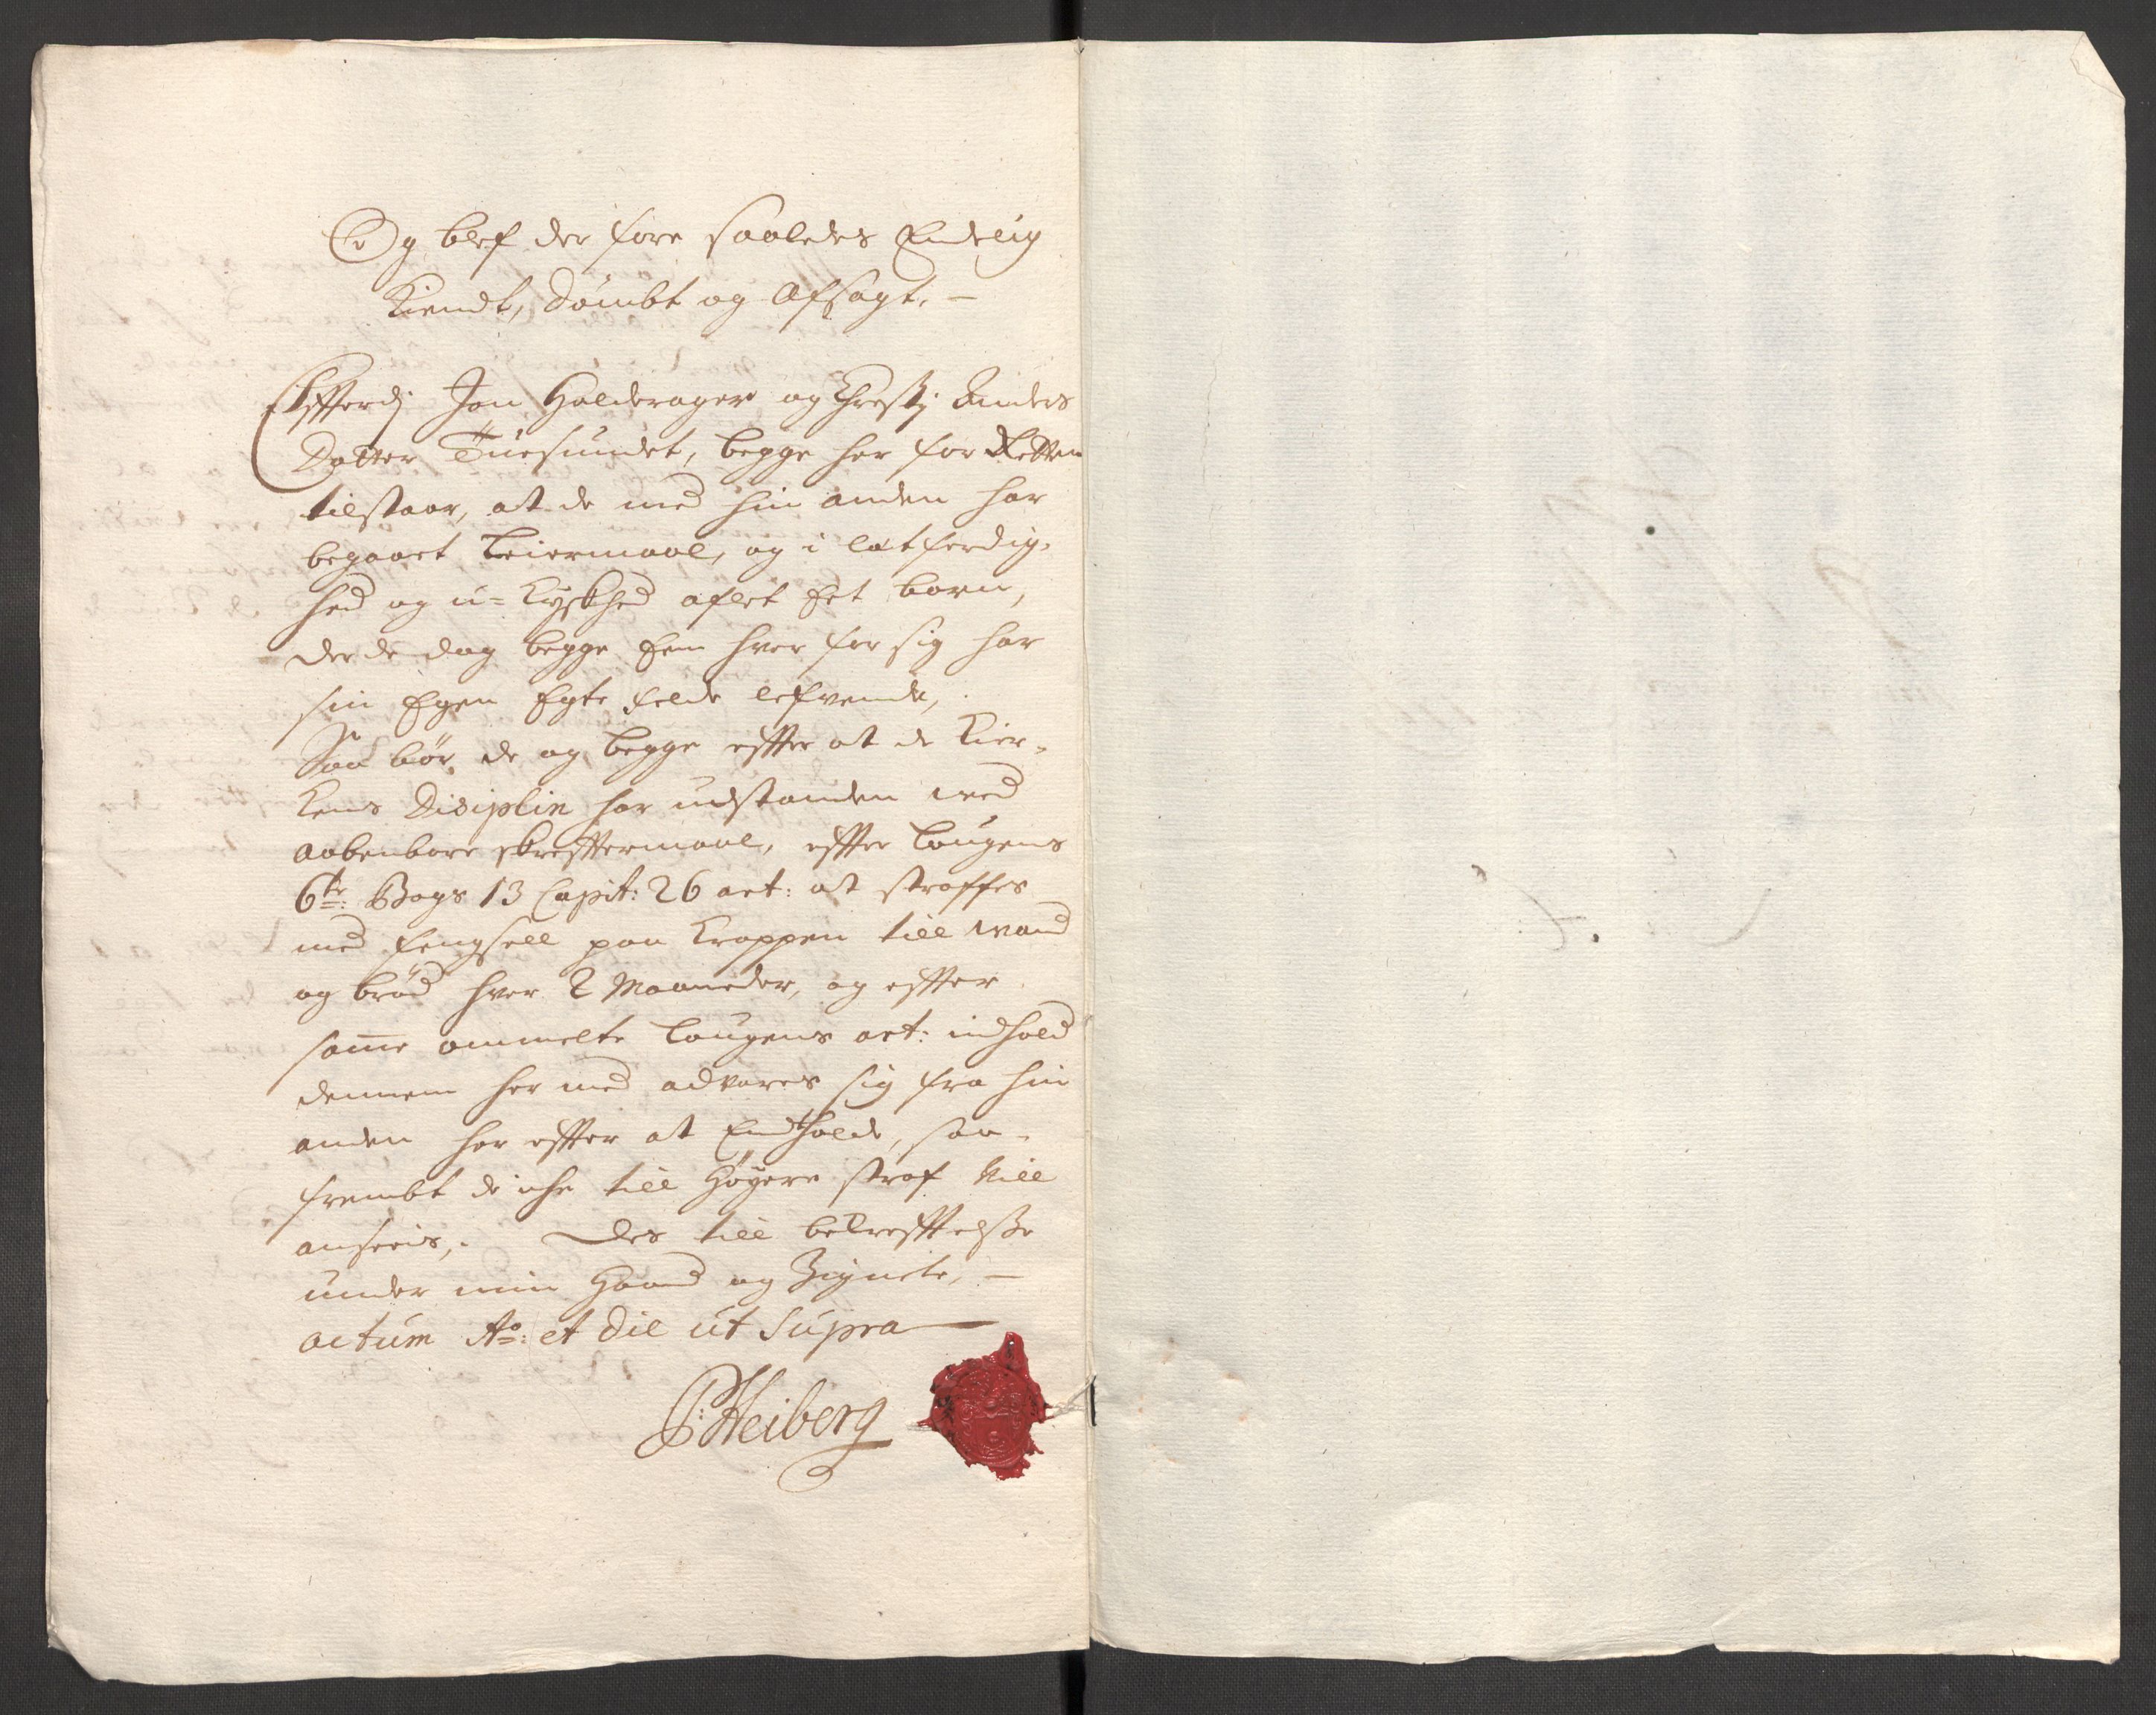 Og blef der fore saaledes Endelig
Kiendt, Dømbt og Afsagt. —
Efftterdj Jon Halderager og Chrestj Anders
Datter Tuesundet, begge her for Retten
tilstaar, at de med hin anden har
begaaet Leiermaal, og i letferdig-
hed og u=kyskhed aflet Eet barn,
der de dog begge Een hver for sig har
sin Egen Egte felde lefvende,
Saa bør de og begge effter at de Kier-
kens Disiplin har udstanden med
aabenbare skrefftermaal, effter Laugens
6te: Bogs 13 Capit: 26 art: at straffes
med fengsell paa Kroppen till wand
og brød hver 2 Maaneder, og effter
same ommelte Laugens art: indhold
dennem her med advares sig fra hin
anden her effter at Entholde, saa-
frembt de iche till Høyere straf vill
ansees, Des till bekrefftelsse
under min Haand og Zignete, —
actum Ao: et Die ut Supra
P: Heiberg